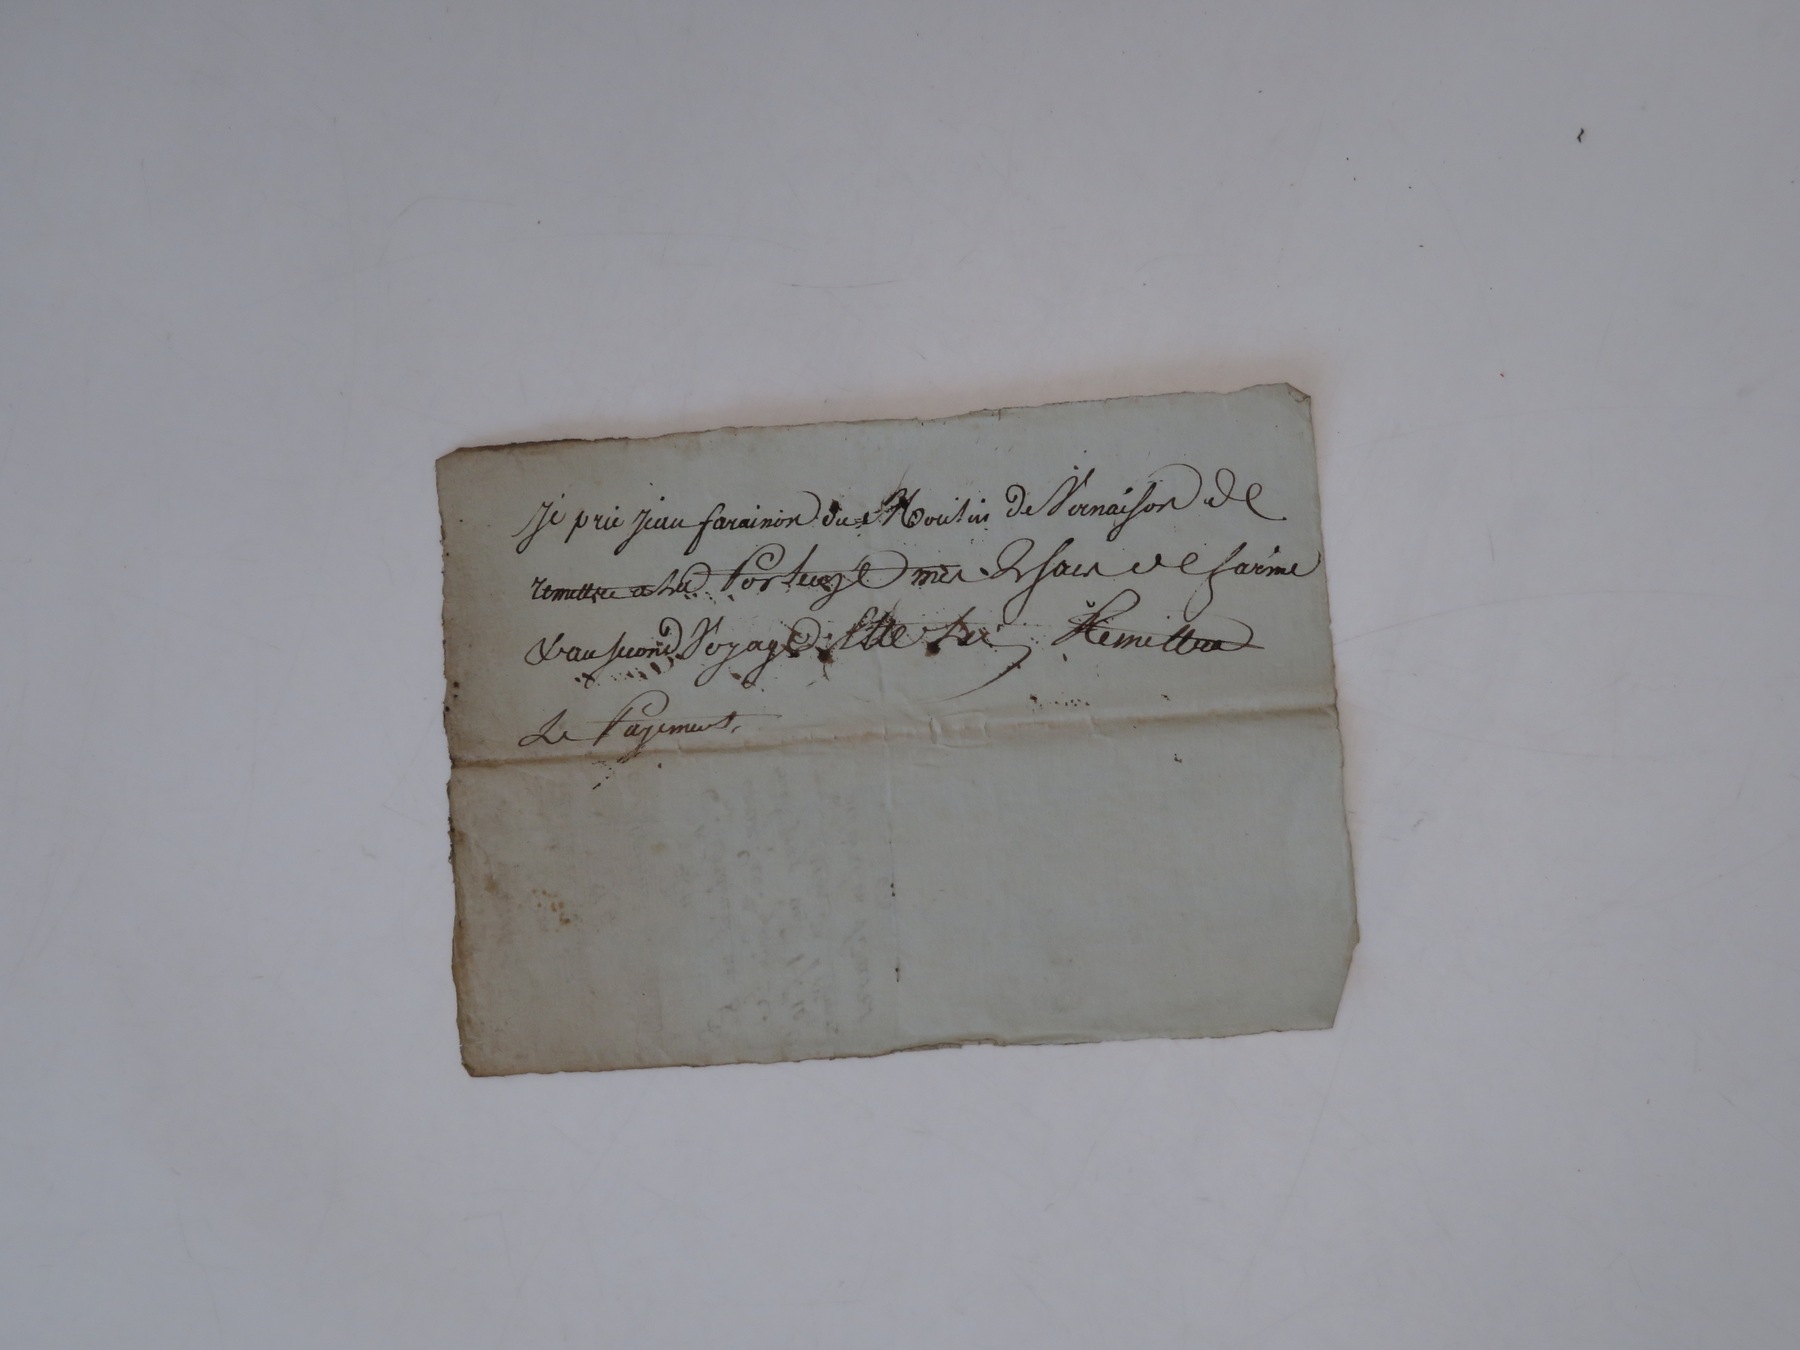 Je prie jean farainon du Moulin de Vernaison de
remettre a la Porteuse mes 2 sacs de farine
& au second Voyage Elle lui Remettra
Le Payement,